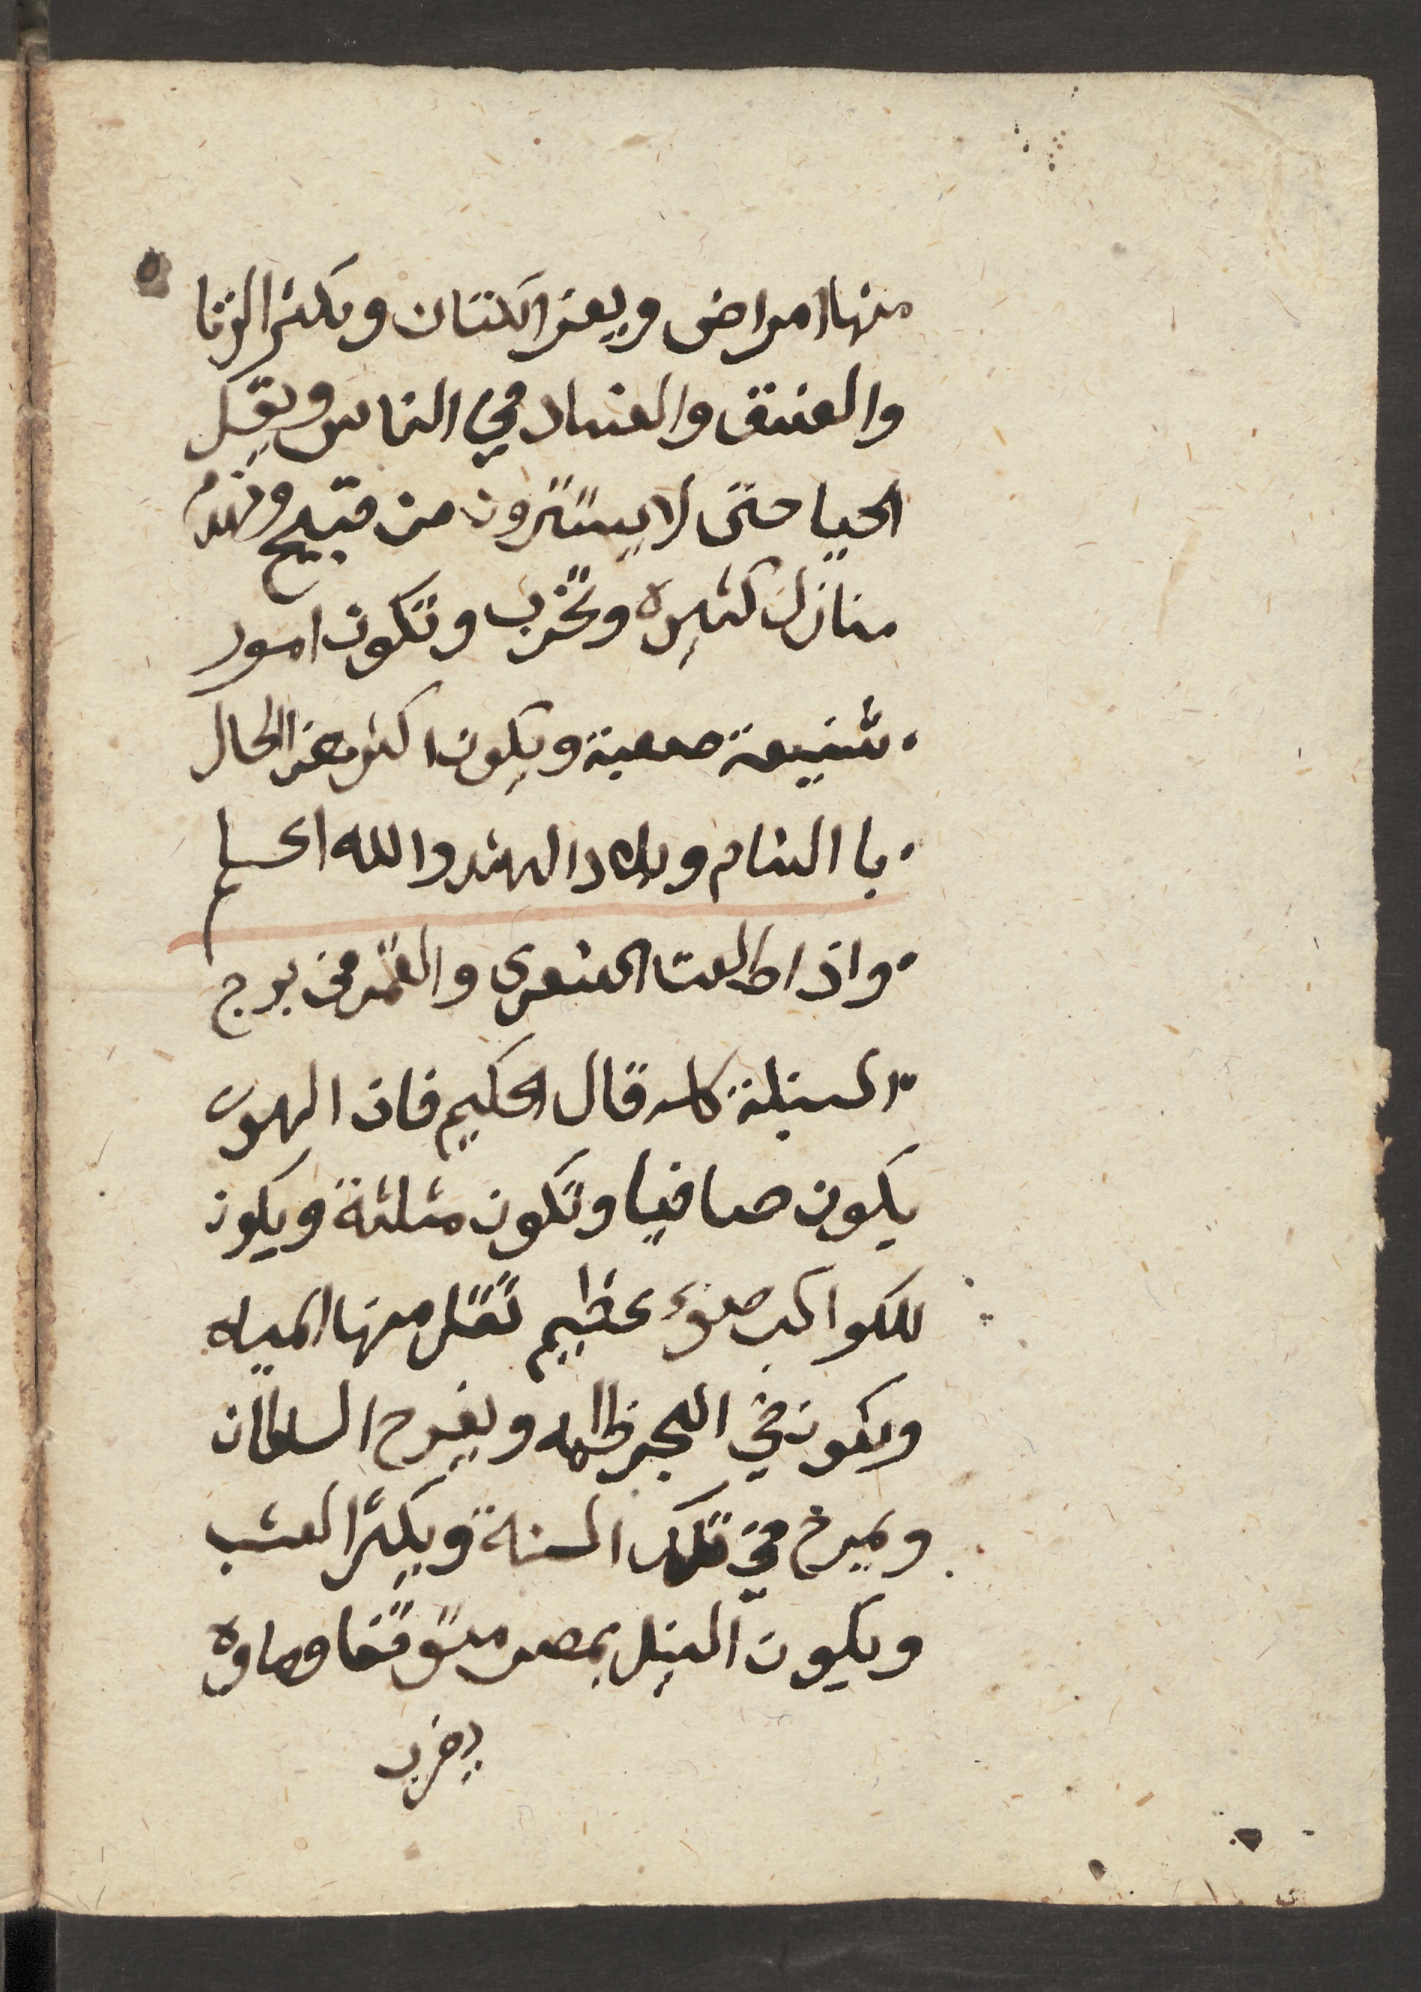 منها امراض ويعز الكتان ويكثر الزنا
والفسق والفساد في الناس ويقل
الحيا حتى لا يستترون من قبيح وتهدم
منازل كثيره وتخرب وتكون امور
شنيعة صعبة ويكون اكثر هذا الحال
با الشام وبلاد الهند والله اعلم
واذا طلعت الشعرى والقمر في برج
السنبلة كله قال الحكيم فان الهوى
يكون صافيا وتكون مثلثة ويكون
للكواكب ضوء عظيم تقل منها المياه
ويكون في البحر ظلمه ويفرح السلطان
ويمرح في تلك السنة ويكثر العشب
ويكون النيل بمصر متوقفا وماوه
يخرب